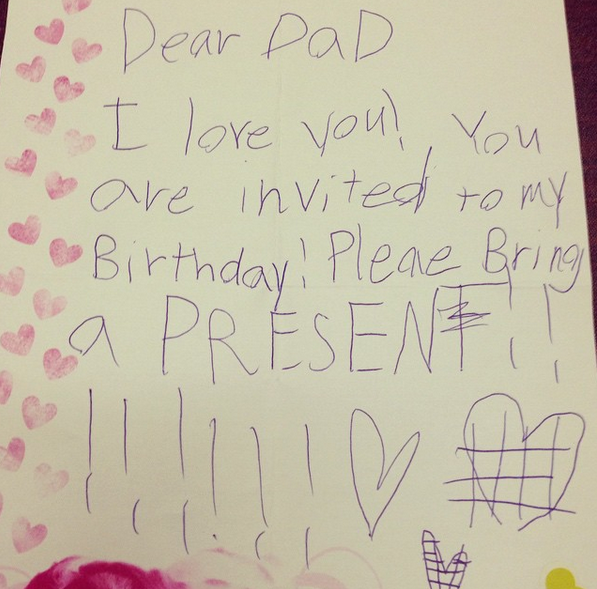 Dear DaD
I love you! You
are invited to my
Birthday! Pleae Bring
a PRESENT!!
!!!!!!